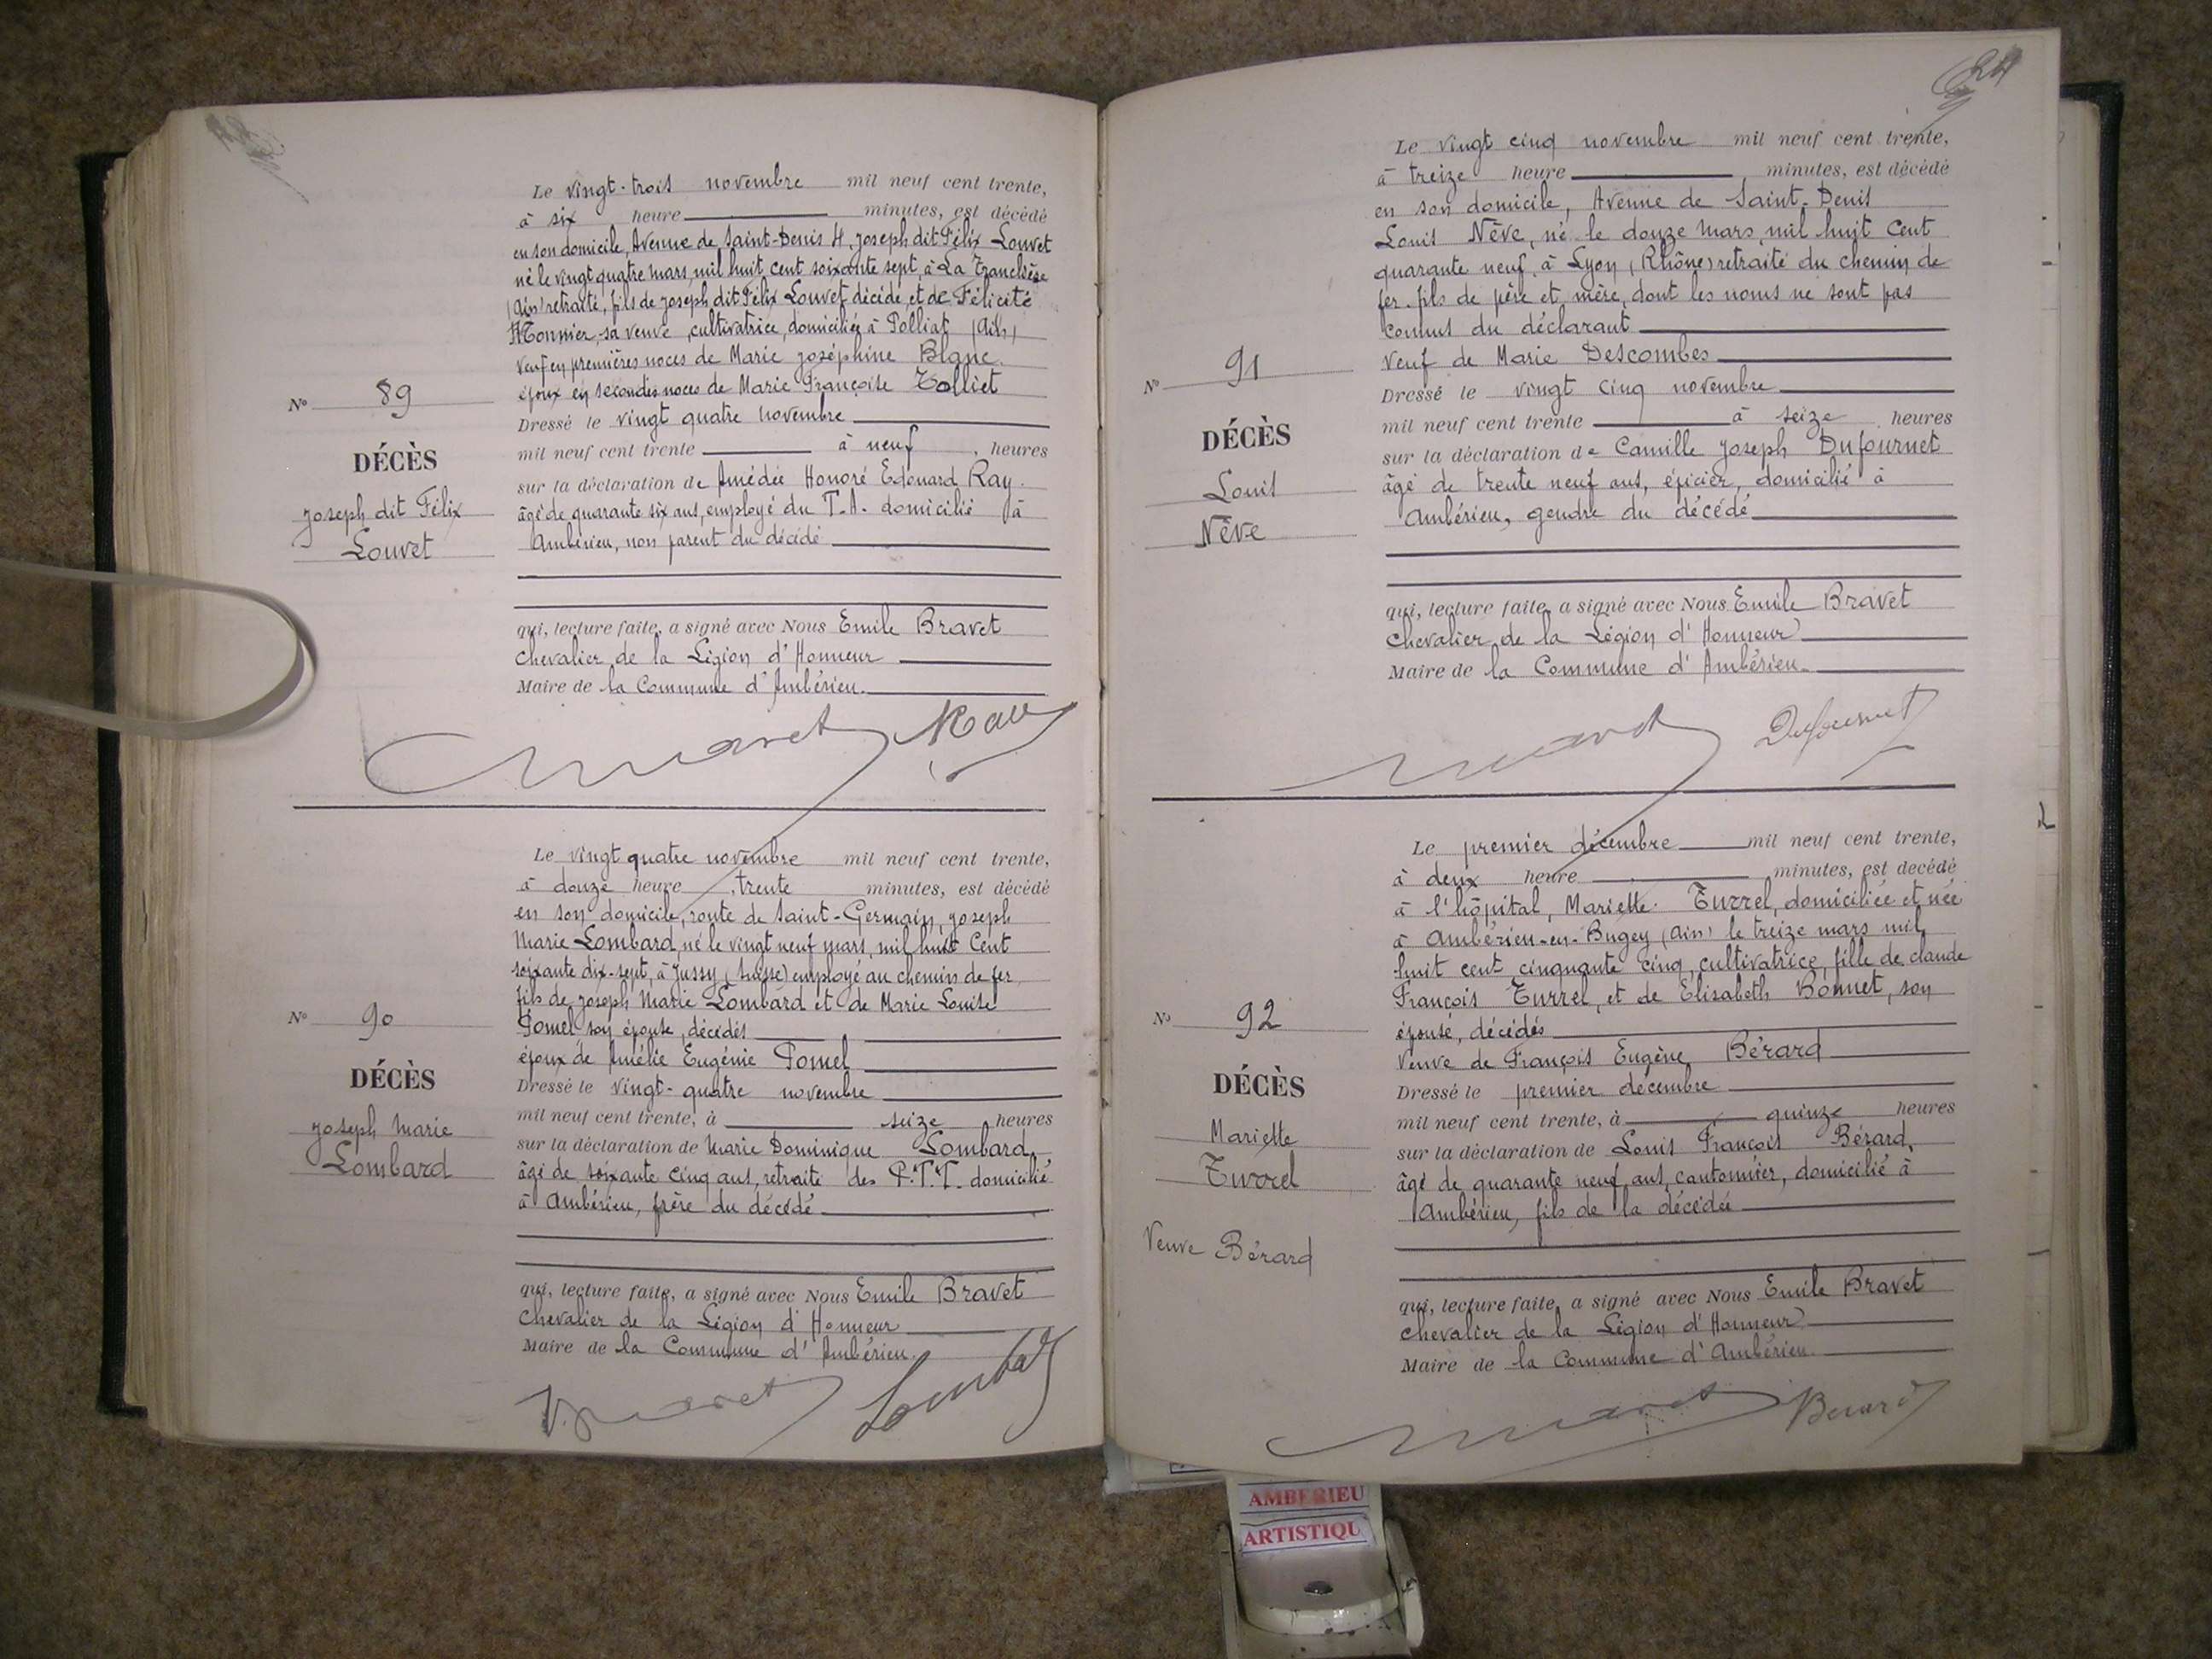 Le vingt-trois novembre mil neuf cent trente,
à six heure minutes, est décédé
en son domicile, Avenue de Saint-Denis 4, Joseph dit Félix Louvet
né le vingt quatre mars, mil huit cent soixante sept, à La Tranclière
(Ain) retraité, fils de Joseph dit Félix Louvet décédé, et de Félicité
Monnier, sa veuve, cultivatrice, domiciliée à Polliat (Ain)
Veuf en premières noces de Marie Joséphine Blanc
époux en secondes noces de Marie Françoise Tolliet
Nº 89
DÉCÈS
Joseph dit Félix
Louvet
Dressé le vingt quatre novembre
mil neuf cent trente à neuf heures
sur la déclaration de Amédée Honoré Edouard Ray
âgé de quarante six ans, employé du T.A. domicilié à
Ambérieu, non parent du décédé
qui, lecture faite, a signé avec Nous Emile Bravet
Chevalier de la Légion d'Honneur
Maire de la Commune d'Ambérieu.
Bravet Ray
Le vingt quatre novembre mil neuf cent trente,
à douze heure trente minutes, est décédé
en son domicile, route de Saint-Germain, Joseph
Marie Lombard, né le vingt neuf mars, mil huit Cent
soixante dix-sept, à Jussy (Suisse) employé au chemin de fer
fils de Joseph Marie Lombard et de Marie Louise
Pomel son épouse, décédés
époux de Amélie Eugénie Pomel
Nº 90
DÉCÈS
Joseph Marie
Lombard
Dressé le vingt-quatre novembre
mil neuf cent trente, à seize heures
sur la déclaration de Marie Dominique Lombard
âgé de soixante cinq ans, retraité des P.T.T. domicilié
à Ambérieu, frère du décédé
qui, lecture faite, a signé avec Nous Emile Bravet
Chevalier de la Légion d'Honneur
Maire de la Commune d'Ambérieu.
Bravet Lombard
Le vingt cinq novembre mil neuf cent trente,
à treize heure minutes, est décédé
en son domicile, Avenue de Saint-Denis
Louis Nève, né le douze mars mil huit Cent
quarante neuf, à Lyon (Rhône) retraité du chemin de
fer. fils de père et mère, dont les noms ne sont pas
connus du déclarant
Veuf de Marie Descombes
Nº 91
DÉCÈS
Louis
Nève
Dressé le vingt cinq novembre
mil neuf cent trente à seize heures
sur la déclaration de Camille Joseph Dufournet
âgé de trente neuf ans, épicier, domicilié à
Ambérieu, gendre du décédé
qui, lecture faite, a signé avec Nous Emile Bravet
Chevalier de la Légion d'Honneur
Maire de la Commune d'Ambérieu.
Bravet Dufournet
Le premier décembre mil neuf cent trente,
à deux heure minutes, est decédé
à l'hôpital, Mariette Turrel, domiciliée et née
à Ambérieu-en-Bugey (Ain) le treize mars mil
huit cent cinquante cinq, cultivatrice, fille de claude
François Turrel, et de Elisabeth Bonnet, son
épouse, décédés
Veuve de François Eugène Bérard
Nº 92
DÉCÈS
Mariette
Turrel
Veuve Bérard
Dressé le premier décembre
mil neuf cent trente, à quinze heures
sur la déclaration de Louis François Bérard,
âgé de quarante neuf ans, cantonnier, domicilié à
Ambérieu, fils de la décédée
qui, lecture faite, a signé avec Nous Emile Bravet
Chevalier de la Légion d'Honneur
Maire de la Commune d'Ambérieu.
Bravet Berard
AMBERIEU
ARTISTIQU